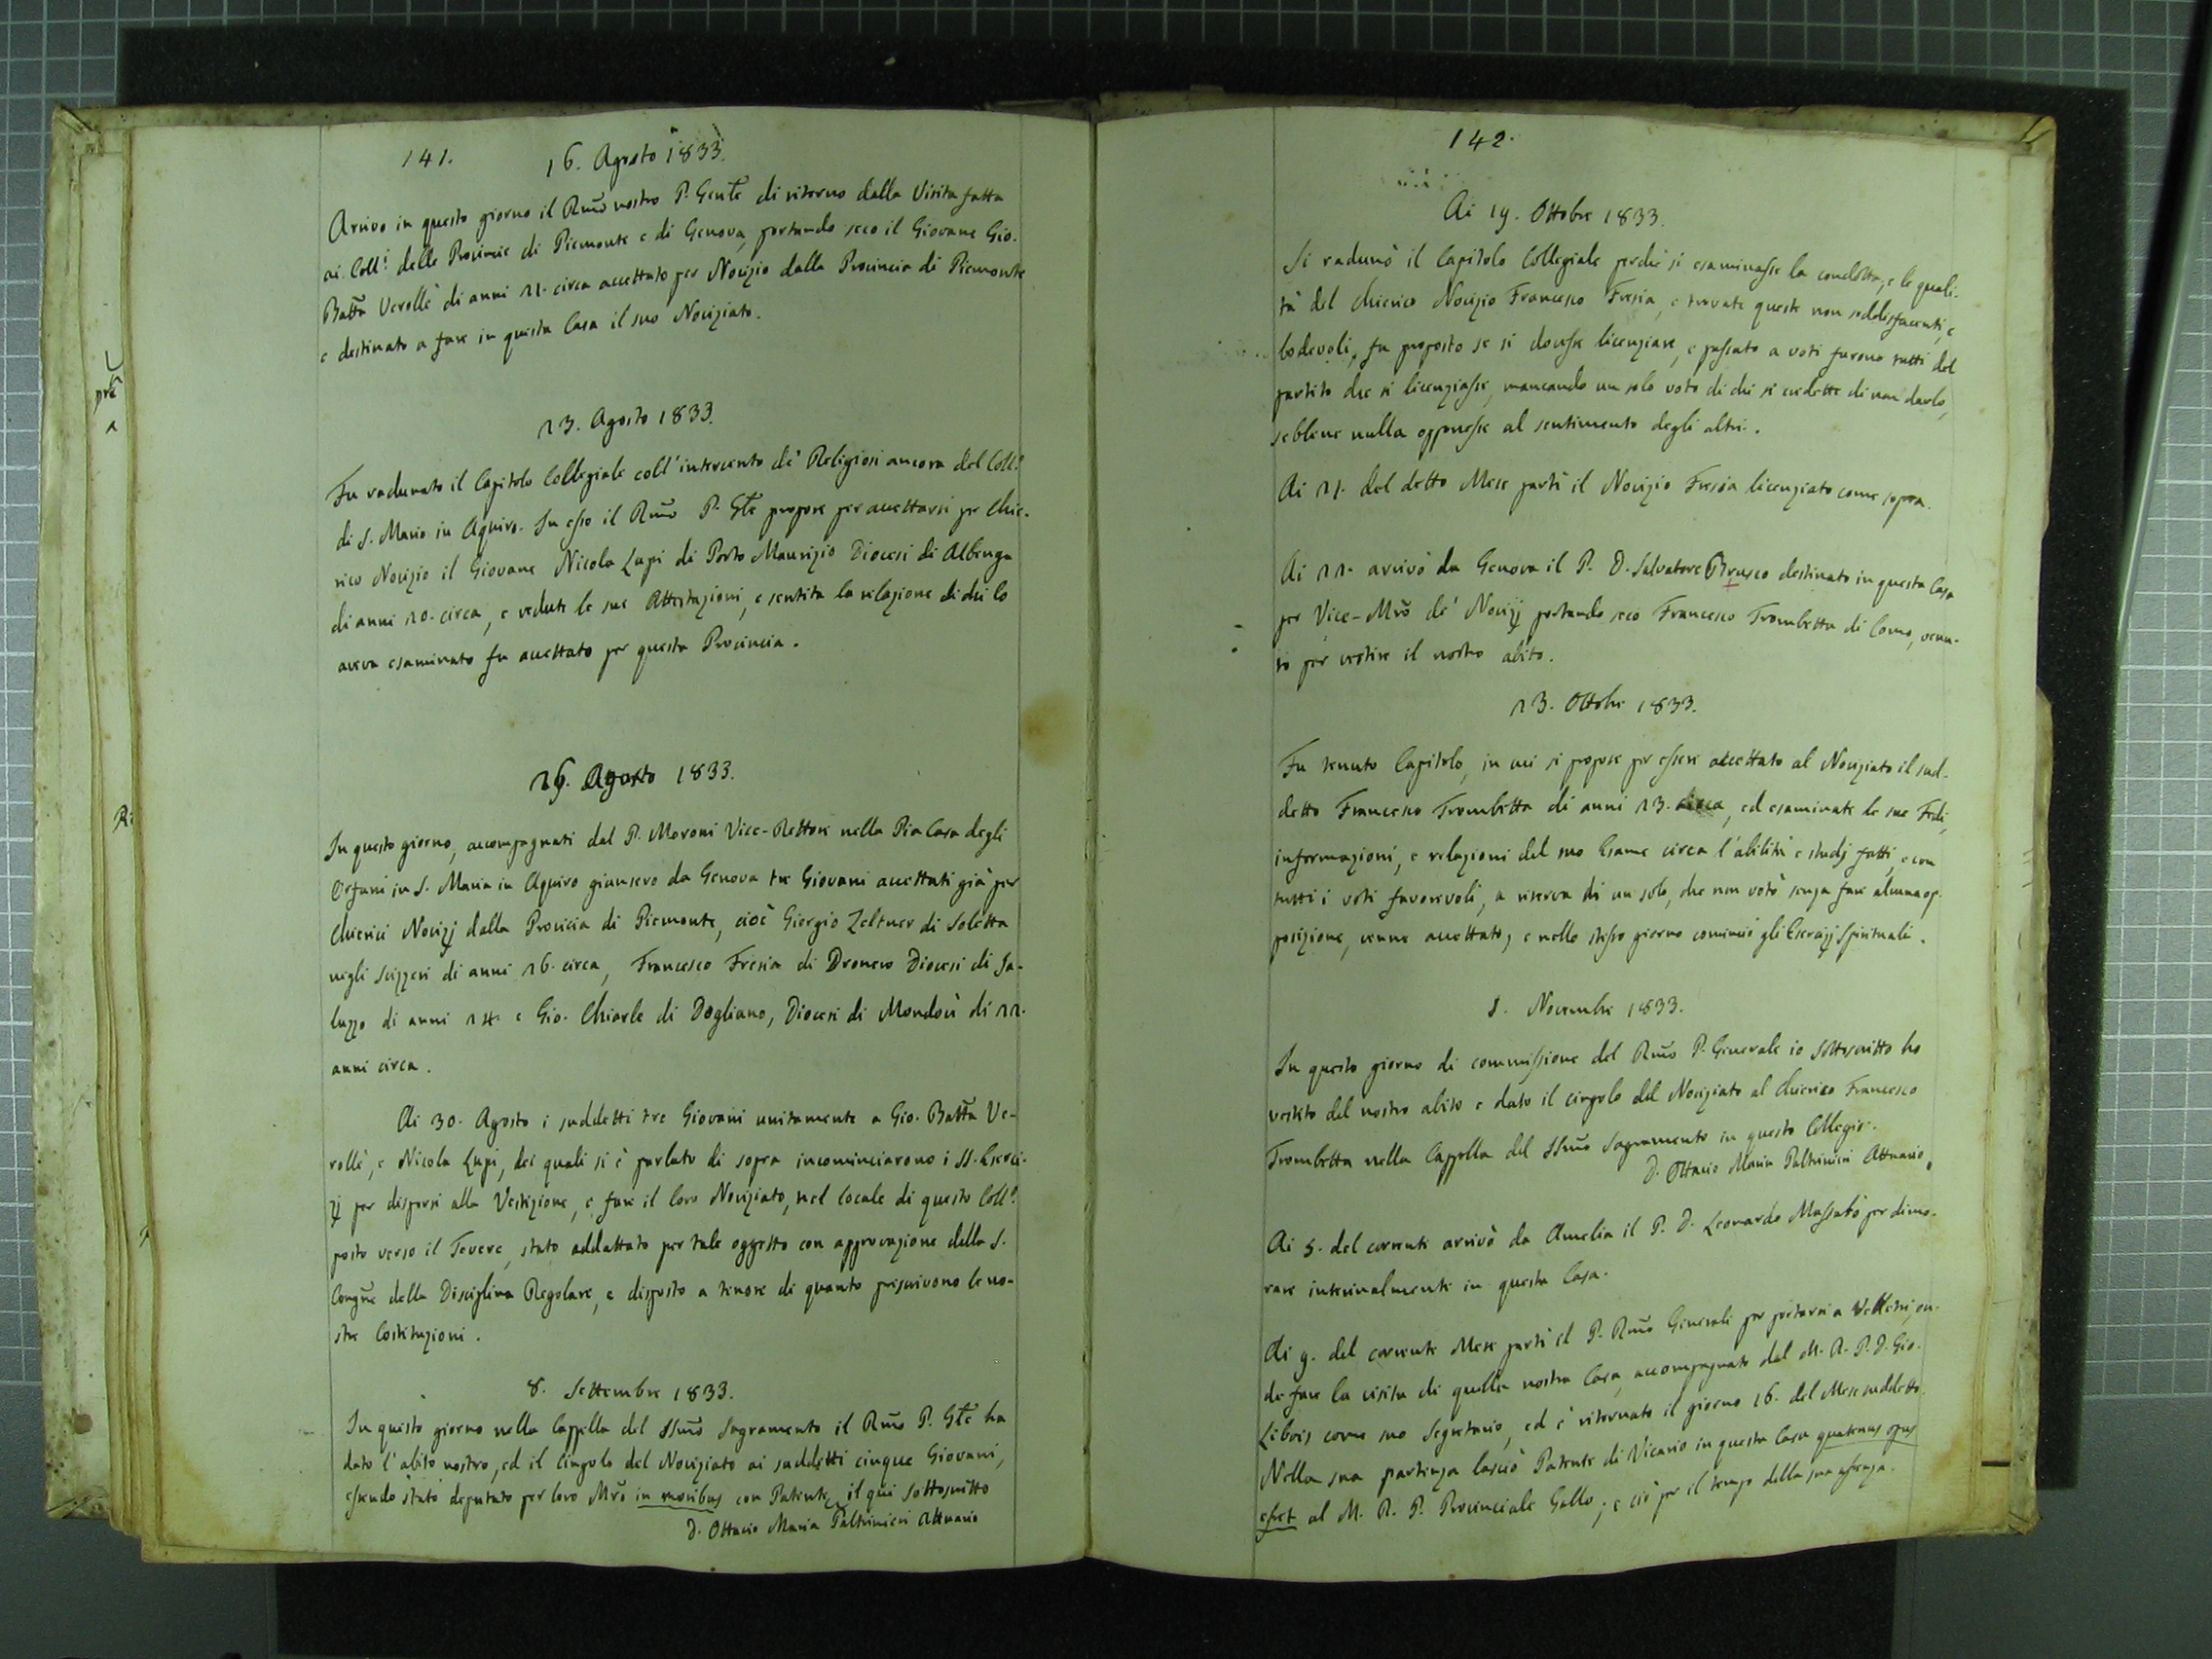 141.
16. Agosto 1833.
Arrivo in questo giorno il Rm̃o nostro P. Gen̄le di ritorno dalla Visita fatta
ai Coll.i delle Provincie di Piemonte e di Genova, portando seco il Giovane Gio.
Batt̃a Verollè di anni 21. circa accettato per Novizio dalla Provincia di Piemonte
e destinato a fare in questa Casa il suo Noviziato.
23. Agosto 1833.
Fu radunato il Capitolo Collegiale coll'intervento de' Religiosi ancora del Coll.o
di S. Maria in Aquiro. In esso il Rm̃o P. Gn̄le propose per accettarsi per Chie-
rico Novizio il Giovane Nicola Lupi di Porto Maurizio Diocesi di Albenga
di anni 20. circa, e vedute le sue Attestazioni, e sentita la relazione di chi lo
aveva esaminato fu accettato per questa Provincia.
29. Agosto 1833.
In questo giorno, accompagnati dal P. Moroni Vice-Rettore nella Pia Casa degli
Orfani in S. Maria in Aquiro giunsero da Genova tre Giovani accettati già per
Chierici Novizj dalla Provicia di Piemonte, cioè Giorgio Zeltner di Soletta
negli Scizzeri di anni 26. circa, Francesco Fresia di Dronero Diocesi di Sa-
luzzo di anni 24. e Gio. Chiarle di Dogliano, Diocesi di Mondovì di 22.
anni circa.
Ai 30. Agosto i suddetti tre Giovani unitamente a Gio. Batt̃a Ve-
rollè, e Nicola Lupi, dei quali si è parlato di sopra incominciarono i SS. Eserci-
zj per disporsi alla Vestizione, e fare il loro Noviziato, nel locale di questo Coll.o
posto verso il Tevere, stato addattato per tale oggetto con approvazione della S.
Congñe della Disciplina Regolare, e disposto a tenore di quanto prescrivono le no-
stre Costituzioni.
8. Settembre 1833.
In questo giorno nella Cappella del SSm̃o Sagramento il Rm̃o P. Gn̄le ha
dato l'abito nostro, ed il Cingolo del Noviziato ai suddetti cinque Giovani,
essendo stato deputato per loro Mr̃o in moribus con Patente il qui sottoscritto
D. Ottavio Maria Paltrinieri Attuario
142.
Ai 19. Ottobre 1833.
Si radunò il Capitolo Collegiale perchè si esaminasse la condotta, e le quali-
tà del Chierico Novizio Francesco Fresia, e trovate queste non soddisfacenti, e
lodevoli, fu proposto se si dovesse licenziare, e passato a voti furono tutti del
partito che si licenziasse, mancando un solo voto di chi si credette di non darlo,
sebbene nulla opponesse al sentimento degli altri.
Ai 21. del detto Mese partì il Novizio Fresia licenziato come sopra.
Ai 22. arrivò da Genova il P. D. Salvatore Brusco destinato in questa Casa
per Vice-Mr̃o de' Novizj portando seco Francesco Trombetta di Como, venu-
to per vestire il nostro abito.
23. Ottobre 1833.
Fu tenuto Capitolo, in cui si propose per essere accettato al Noviziato il sud-
detto Francesco Trombetta di anni 23. circa, ed esaminate le sue Fedi,
informazioni, e relazioni del suo Esame circa l'abilità e studj fatti, e con
tutti i voti favorevoli, a riserva di un solo, che non votò senza fare alcuna op-
posizione, venne accettato, e nello stesso giorno cominciò gli Esercizj Spirituali.
1. Novembre 1833.
In questo giorno di commissione del Rm̃o P. Generale io Sottoscritto ho
vestito del nostro abito e dato il cingolo del Noviziato al chierico Francesco
Trombetta nella Cappella del SSm̃o Sagramento in questo Collegio.
D. Ottavio Maria Paltrinieri Attuario.
Ai 5. del corrente arrivò da Amelia il P. D. Leonardo Massabò per dimo-
rare interinalmente in questa Casa.
Ai 9. del corrente Mese partì il P. Rm̃o Generale per portarsi a Velletri, on-
de fare la visita di quella nostra Casa, accompagnato dal M. R. P. D. Gio.
Libois come suo Segretario, ed è ritornato il giorno 16. del Mese suddetto.
Nella sua partenza lasciò Patente di Vicario in questa Casa quatenus opus
esset al M. R. P. Provinciale Gallo; e ciò per il tempo della sua assenza.